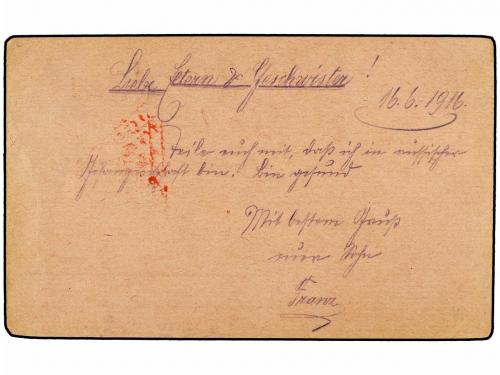 Liebe Eltern & Geschwister!
16.6.1916.
Teile euch mit, daß ich in russischer
Gefangenschaft bin. bin gesund
Mit bestem Gruß
euer Sohn
Franz